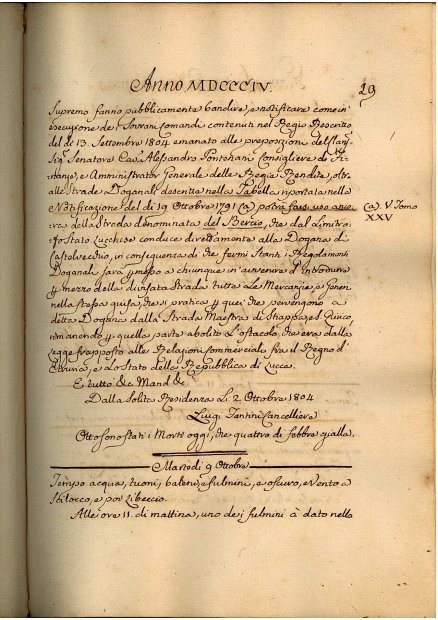 Anno MDCCCIV.
19
Supremo fanno pubblicamente bandire, e notificare come in
esecuzione de' Sovrani Comandi contenuti nel Regio Rescritto
del dì 13. Settembre 1804 emanato alle proporzioni dell'
Sig. Senatore Cav. Alessandro Pontenani Consigliere di Fi-
nanze, e Amministrator Generale delle Regie Rendite, oltr.
alle strade Doganali descritte nella Tabella riportata nella
Notificazione del dì 19 Ottobre 1791 (a) potrà farsi uso anco-
ra della Strada denominata del Bercio, che dal Limitro-
fo Stato Lucchese conduce direttamente alla Dogana di
Castelvecchio, in conseguenza di che fermi stanti i Regolamenti
Doganali sarà permesso a chiunque in avvenire d'Introdurre
per mezzo della divisata Strada tutte Le Mercanzie, e Generi
nella stessa guisa, che si pratica per quei che pervengono a
detta Dogana dalla Strada Maestra di Stiappa, e Guzco,
rimanendo per quella parte abolito L'ostacolo, che era dalla
Legge frapposto alle Relazioni Commerciale fra il Regno d'
Etruria, e Lo Stato della Repubblica di Lucca.
(a). V. Tomo
XXV
E tutto &c a Mand &c
Dalla Solita Residenza Li 2 Ottobre 1804
Luigi Fantini Cancelliere
Otto sono stati i Morti oggi, che quattro di febbre gialla.
Martedì 9 Ottobre
Tempo acqua, tuoni, baleni, e fulmini, e oscuro, e Vento a
Scilocco, e poi Libeccio.
Alle ore 11. di mattina, uno dei fulmini à dato nelle